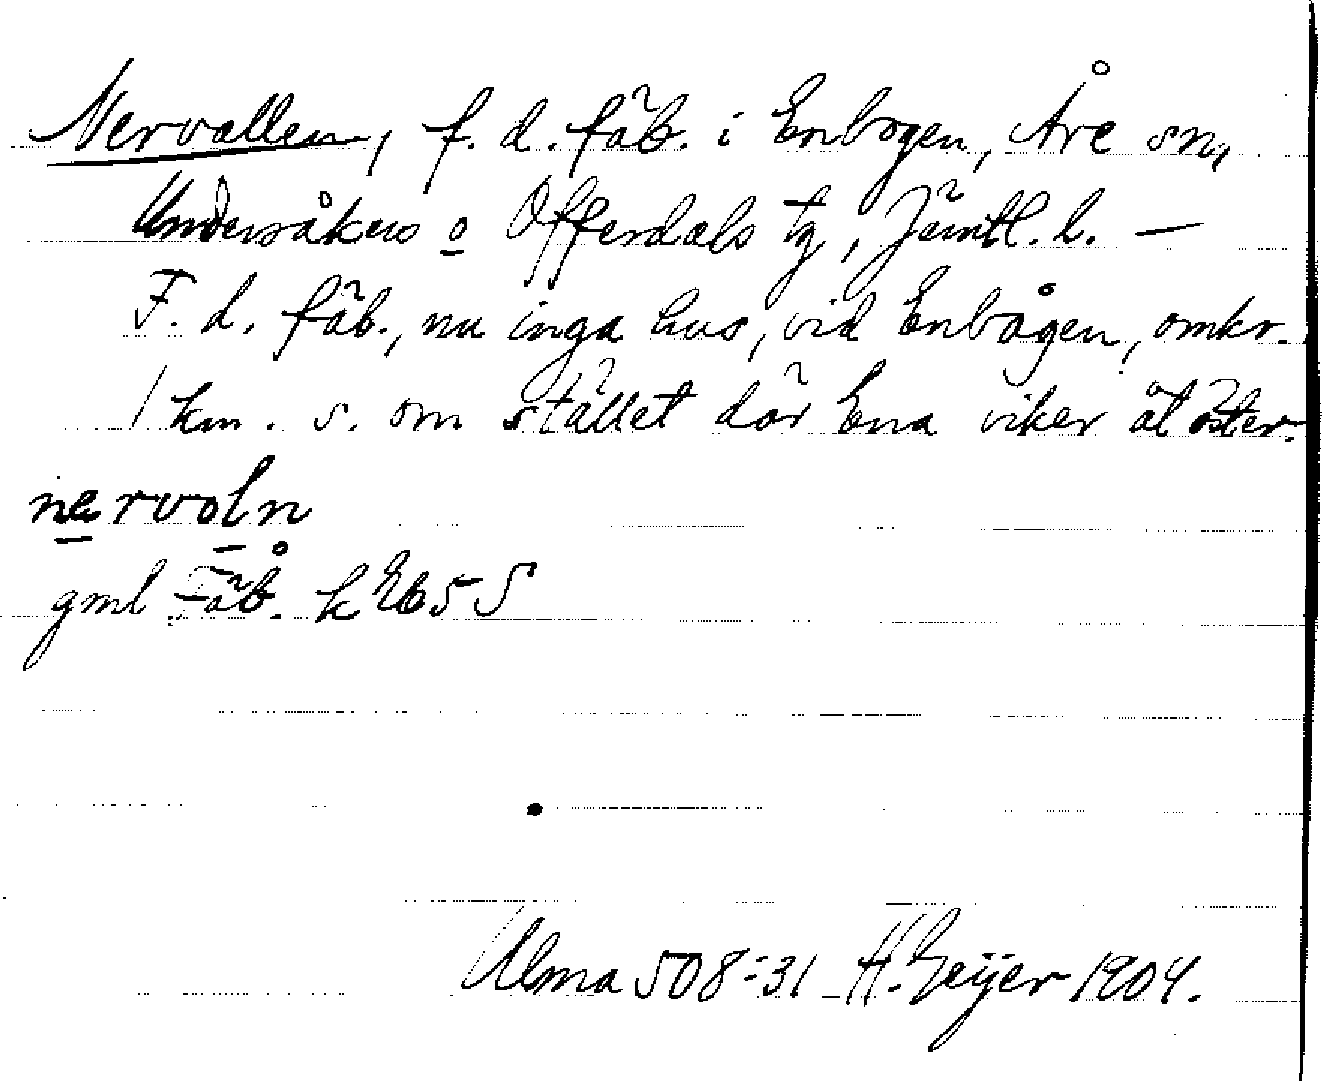 Nervallen, f. d. fäb. i Enbogen, Åre sn,
Undersåkers o Offerdals tg, Jämtl. l. —
F. d. fäb., nu inga hus, vid Enbågen, omkr.
1 km. s. om stället där Ena viker åt öster.
nervoln
gml Fäb. k
Ulma 508:31 H. Geijer 1904.